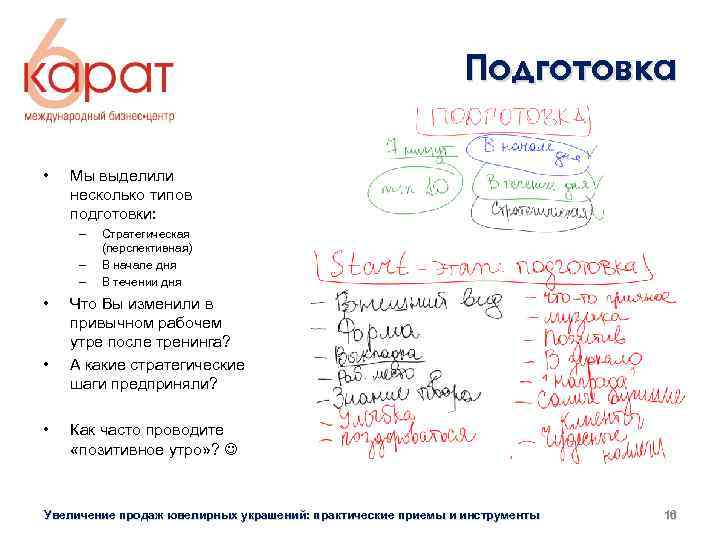 6 карат
международный бизнес•центр
Подготовка
• Мы выделили
несколько типов
подготовки:
– Стратегическая
(перспективная)
– В начале дня
– В течении дня
• Что Вы изменили в
привычном рабочем
утре после тренинга?
• А какие стратегические
шаги предприняли?
• Как часто проводите
«позитивное утро»? ☺
ПОДГОТОВКА
7 минут
В начале
дня
max 20
В течении дня
Стратегическая
Start - этап: подготовка
- Внешний вид
- Форма
- Выкладка
- Раб. место
- Знание товара
- Улыбка
- поздороваться
- что-то приятное
- музыка
- Позитив
- В зеркало
- награда
- Самые лучшие
клиенты
- Чудесные
Увеличение продаж ювелирных украшений: практические приемы и инструменты
16